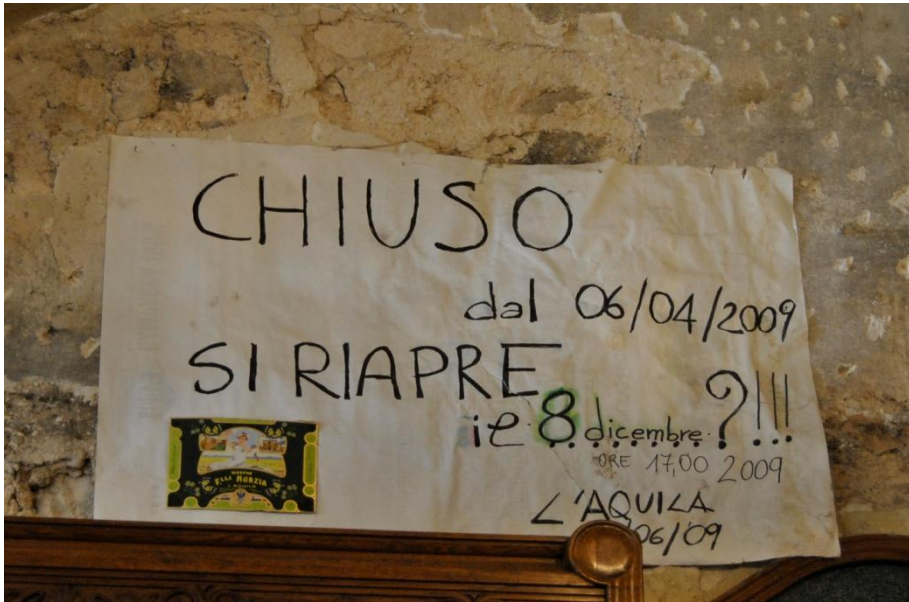 CHIUSO
dal 06/04/2009
SI RIAPRE
ie 8 dicembre ?!!!
ORE 17,00 2009
L'AQUILA
06/09
F.LLI NURZIA
L'AQUILA